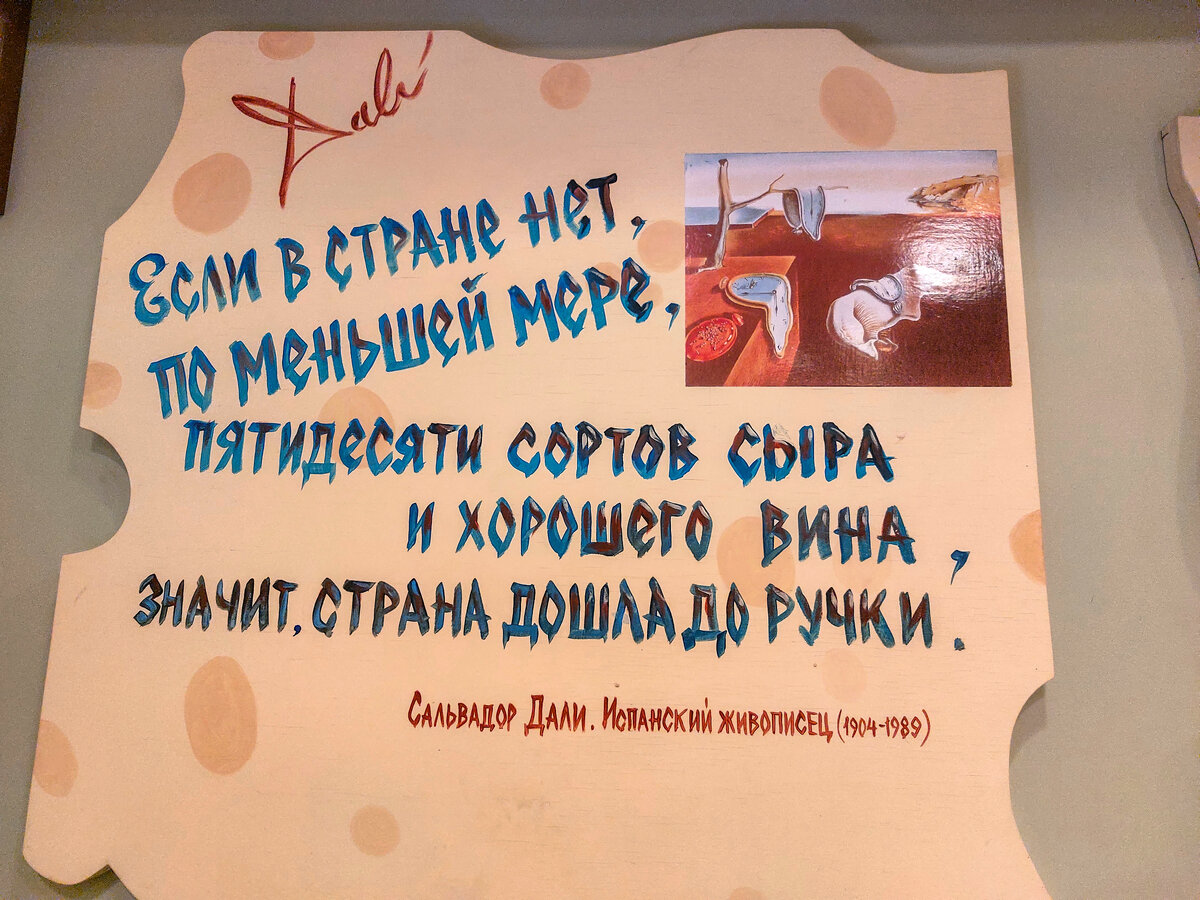 Dalí
Если в стране нет,
по меньшей мере,
пятидесяти сортов сыра
и хорошего вина,
значит, страна дошла до ручки.
Сальвадор Дали. Испанский живописец (1904-1989)